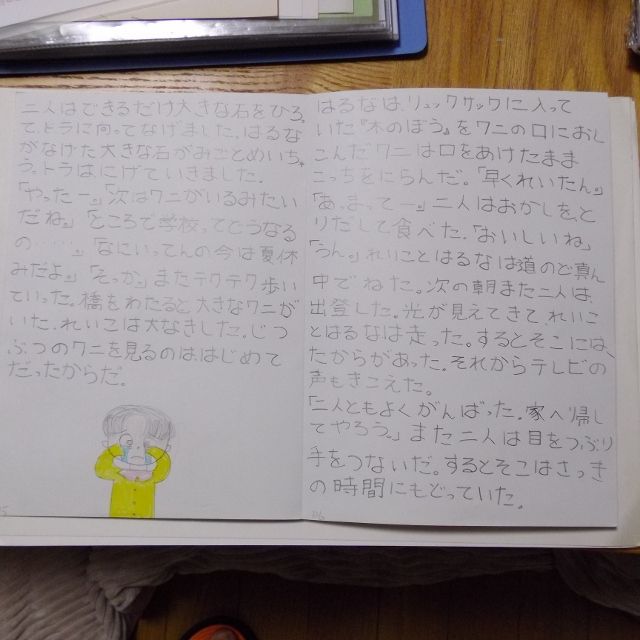 二人はできるだけ大きな石をひろっ
て、トラに向ってなげました。はるな
がなげた大きな石がみごとめいちゅ
う。トラはにげていきました。
「やったー。」「次はワニがいるみたい
だね。」「ところで学校ってどうなる
の……。」「なにいってんの今は夏休
みだよ。」「そっか。」またテクテク歩い
ていった。橋をわたると大きなワニが
いた。れいこは大なきした。じつ
ぶつのワニを見るのははじめて
だったからだ。
はるなは、リュックサックに入って
いた『木のぼう』をワニの口におし
こんだ。ワニは口をあけたまま
こっちをにらんだ。「早くれいたん。」
「あ、まってー。」二人はおかしをと
りだして食べた。「おいしいね」
「うん。」れいことはるなは道のど真ん
中でねた。次の朝また二人は、
出登した。光が見えてきて、れいこ
とはるなは走った。するとそこには、
たからがあった。それからテレビの
声もきこえた。
「二人ともよくがんばった。家へ帰し
てやろう。」また二人は目をつぶり
手をつないだ。するとそこはさっき
の時間にもどっていた。